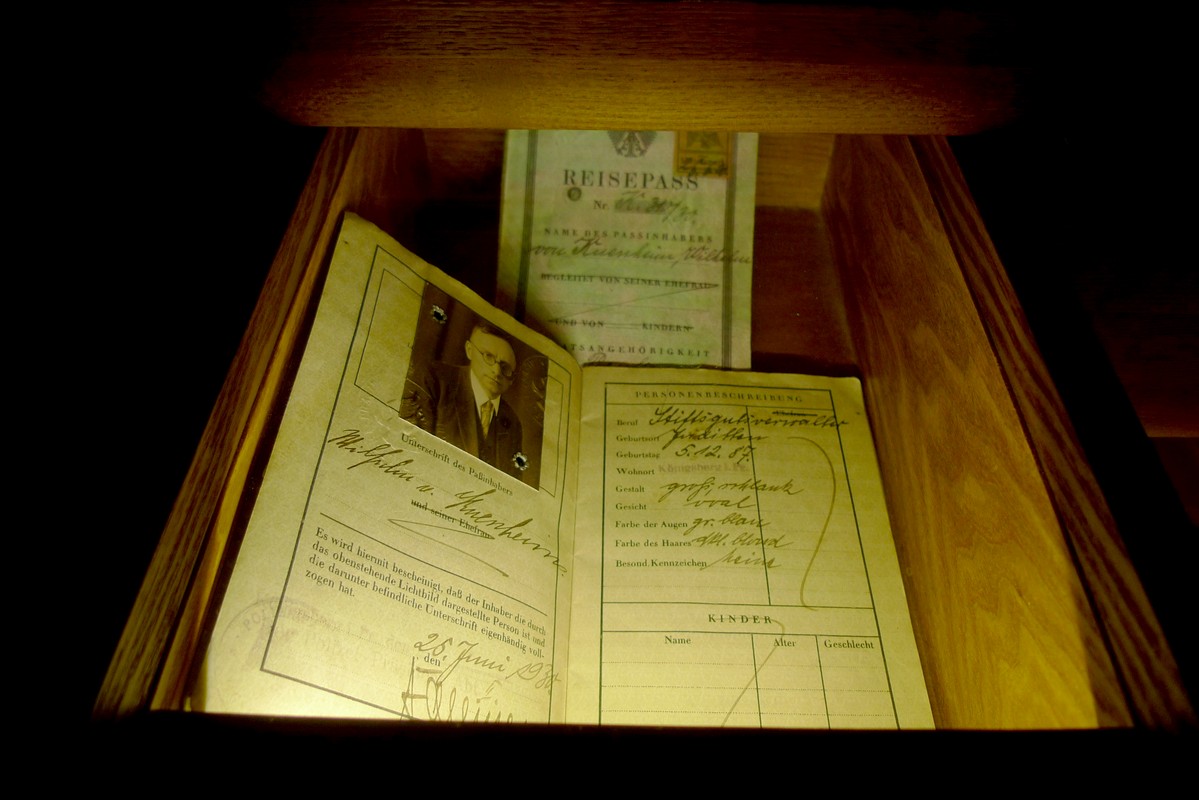 REISEPASS
Nr.
NAME DES PASSINHABERS
von Kuenheim, Wilhelm
BEGLEITET VON SEINER EHEFRAU
UND VON KINDERN
TSANGEHÖRIGKEIT
Unterschrift des Paßinhabers
Wilhelm v. Kuenheim
und seiner Ehefrau
Es wird hiermit bescheinigt, daß der Inhaber die durch
das obenstehende Lichtbild dargestellte Person ist und
die darunter befindliche Unterschrift eigenhändig voll-
zogen hat.
den 26. Juni 193
PERSONENBESCHREIBUNG
Ehefrau
Beruf Stiftsgutsverwalter
Geburtsort
Geburtstag 5.12.87.
Wohnort Königsberg i. Pr.
Gestalt groß, schlank
Gesicht oval
Farbe der Augen gr. blau
Farbe des Haares dkl. blond
Besond. Kennzeichen keine
KINDER
Name Alter Geschlecht